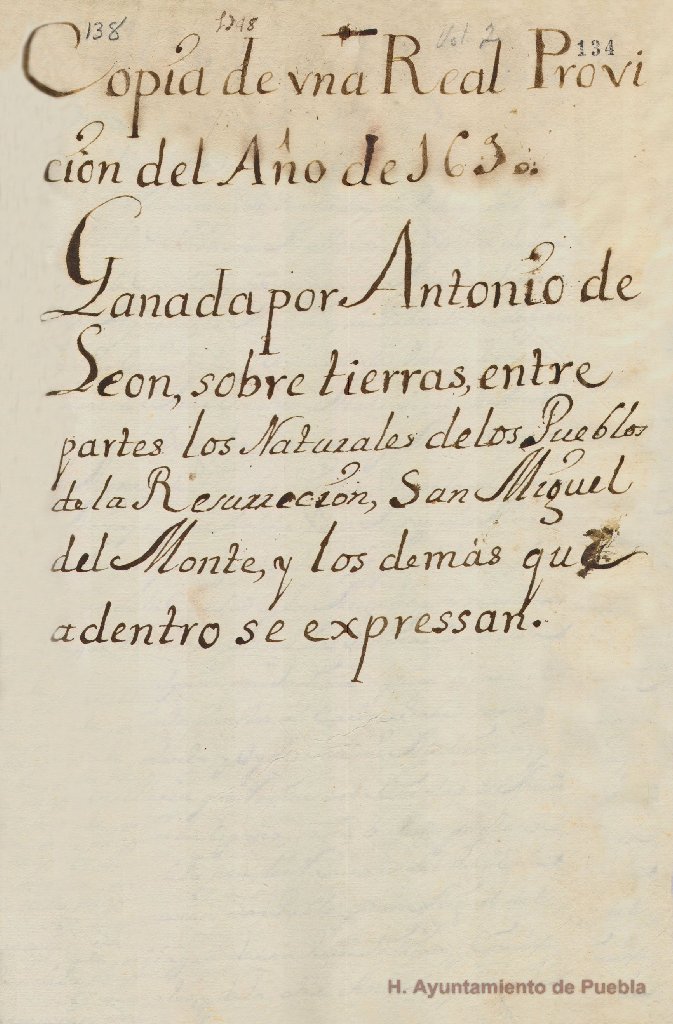 138 1748 Vol. 2 134
Copia de vna Real Provi
cion del Año de 1630.
Ganada por Antonio de
Leon, sobre tierras, entre
partes los Naturales de los Pueblos
de la Resurreccion, San Miguel
del Monte, y los demás que
adentro se expressan.
H. Ayuntamiento de Puebla